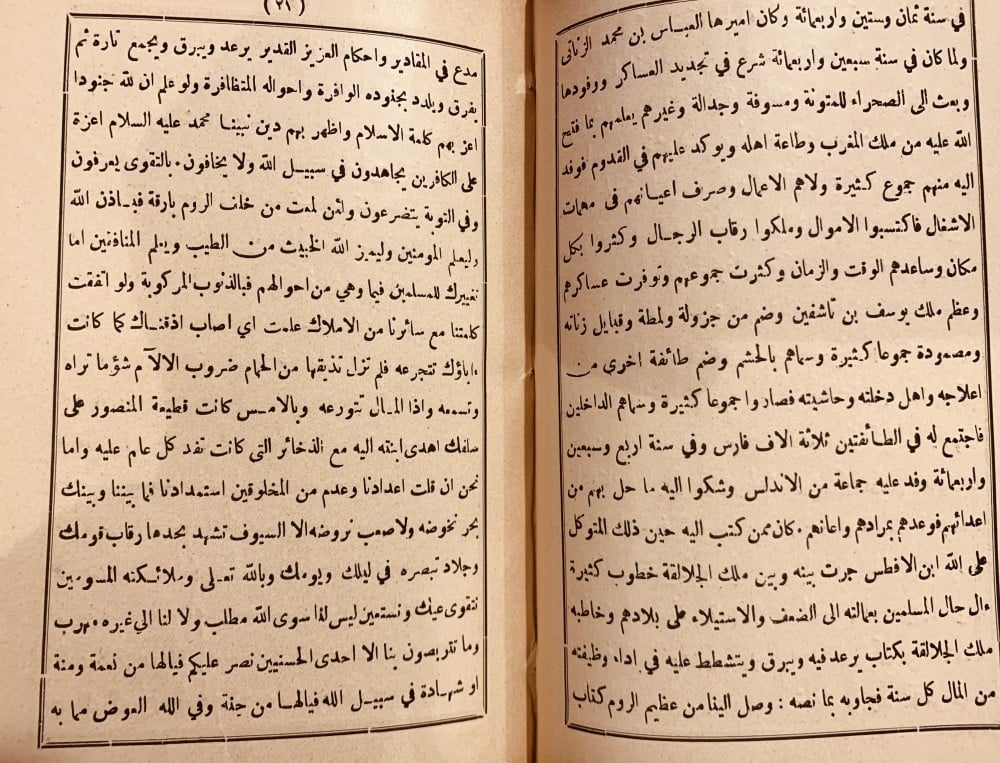 في سنة ثمان وستين واربعمائة وكان اميرها العباس بن محمد الزناتى
ولما كان في سنة سبعين واربعمائة شرع في تجديد العساكر ووفودها
وبعث الى الصحراء للمتونة ومسوفة وجدالة وغيرهم يعلمهم بما فتح
الله عليه من ملك المغرب وطاعة اهله ويوكد عليهم في القدوم فوفد
اليه منهم جموع كثيرة ولاهم الاعمال وصرف اعيانهم في مهمات
الاشغال فاكتسبوا الاموال وملكوا رقاب الرجال وكثروا بكل
مكان وساعدهم الوقت والزمان وكثرت جموعهم وتوفرت عساكرهم
وعظم ملك يوسف بن تاشفين وضم من جزولة ولمطة وقبايل زناته
ومصمودة جموعا كثيرة وسماهم بالحشم وضم طائفة اخرى من
اعلاجه واهل دخلته وحاشيته فصاروا جموعا كثيرة وسماهم الداخلين
فاجتمع له في الطائفتين ثلاثة الاف فارس وفي سنة اربع وسبعين
واربعمائة وفد عليه جماعة من الاندلس وشكوا اليه ما حل بهم من
اعدائهم فوعدهم بمرادهم واعانهم • كان ممن كتب اليه حين ذلك المتوكل
على الله ابن الافطس جرت بينه وبين ملك الجلالقة خطوب كثيرة
ءال حال المسلمين بعمالته الى الضعف والاستيلاء على بلادهم وخاطبه
ملك الجلالقة بكتاب يرعد فيه ويبرق ويتشطط عليه في اداء وظيفته
من المال كل سنة فجاوبه بما نصه : وصل الينا من عظيم الروم كتاب
(٢١)
مدع في المقادير واحكام العزيز القدير يرعد ويبرق ويجمع تارة ثم
يفرق ويلدد بجنوده الوافرة واحواله المتظافرة ولو علم ان لله جنودا
اعز بهم كلمة الاسلام واظهر بهم دين نبينا محمد عليه السلام اعزة
على الكافرين يجاهدون في سبيل الله ولا يخافون • بالتقوى يعرفون
وفي التوبة يتضرعون ولئن لمعت من خلف الروم بارقة فباذن الله
وليعلم المومنين وليميز الله الخبيث من الطيب ويعلم المنافقين اما
تعييرك للمسلمين فيما وهي من احوالهم فبالذنوب المركوبة ولو اتفقت
كلمتنا مع سائرنا من الاملاك علمت اي اصاب اذقناك كما كانت
ءاباؤك تتجرعه فلم تزل تذيقها من الحمام ضروب الالآم شؤما تراه
وتسمعه واذا المال تتورعه وبالامس كانت قطيعة المنصور على
سلفك اهدى ابنته اليه مع الذخائر التى كانت تفد كل عام عليه واما
نحن ان قلت اعدادنا وعدم من المخلوقين استمدادنا فما بيننا وبينك
بحر نخوضه ولا صعب نروضه الا السيوف تشهد بحدها رقاب قومك
وجلاد تبصره في ليلك ويومك وبالله تعلى وملائكته المسومين
نتقوى عليك ونستعين ليس لنا سوى الله مطلب ولا لنا الي غيره مهرب
وما تتربصون بنا الا احدى الحسنيين نصر عليكم فيالها من نعمة ومنة
او شهادة في سبيل الله فيالها من جنة وفي الله العوض مما به